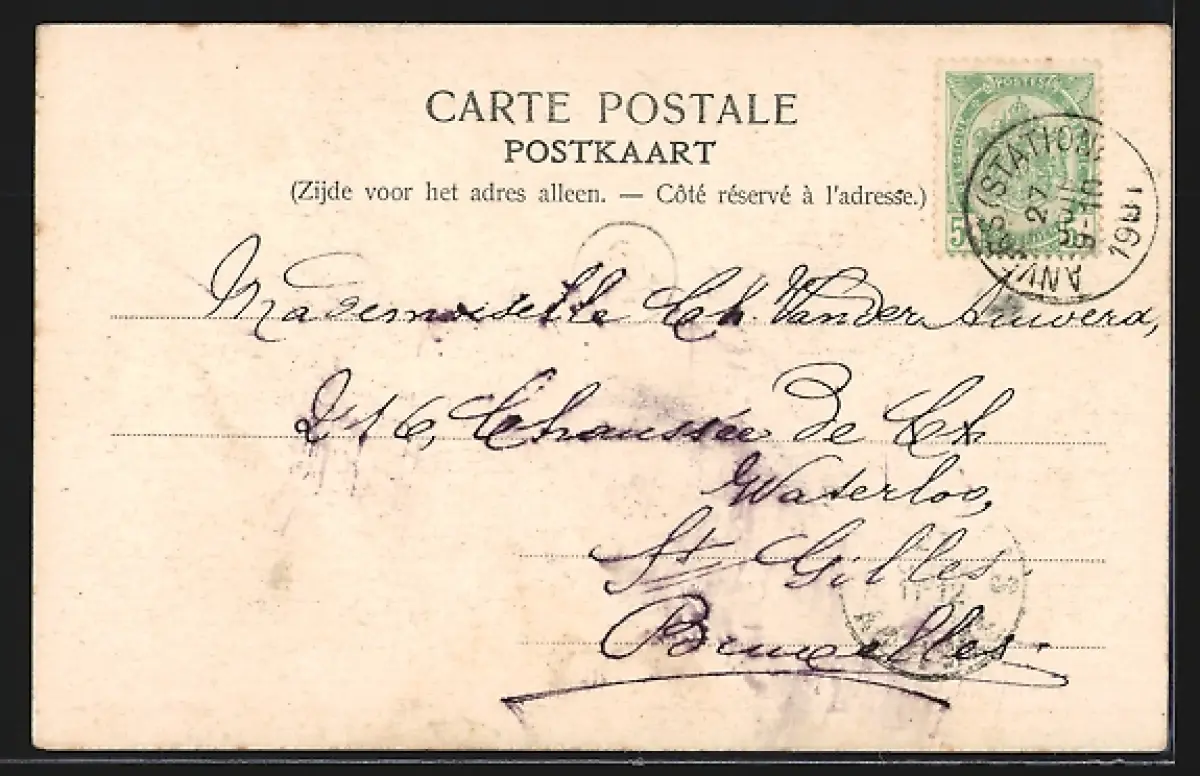 CARTE POSTALE
POSTKAART
(Zijde voor het adres alleen. — Côté réservé à l'adresse.)
POSTES
5 5
(STATION)
27
9-10
1901
Mademoiselle Ch. Vander Auwera,
216, Chaussée de Ch
Waterloo,
St Gilles.
Bruxelles.